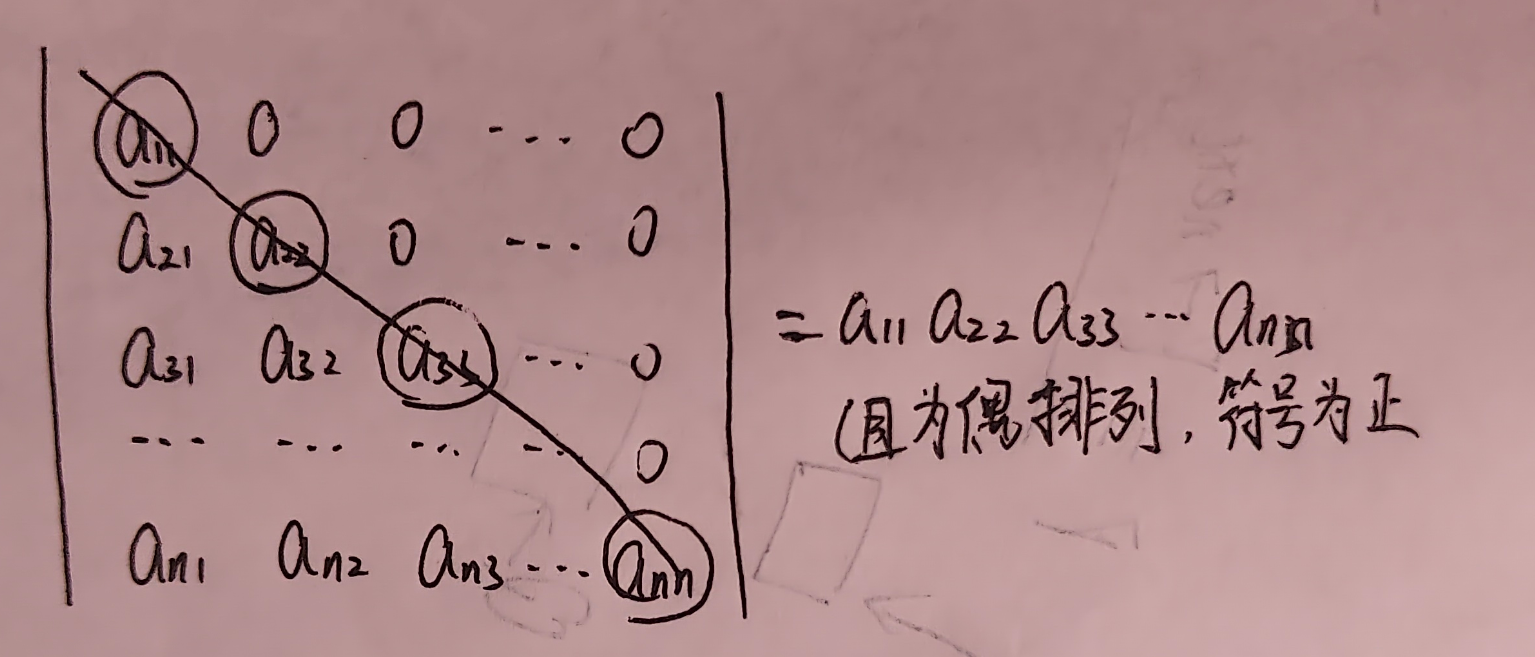 a₁₁ 0 0 --- 0
a₂₁ a₂₂ 0 --- 0
a₃₁ a₃₂ a₃₃ --- 0
--- --- --- --- 0
aₙ₁ aₙ₂ aₙ₃ --- aₙₙ
= a₁₁ a₂₂ a₃₃ --- aₙₙ
(且为偶排列, 符号为正